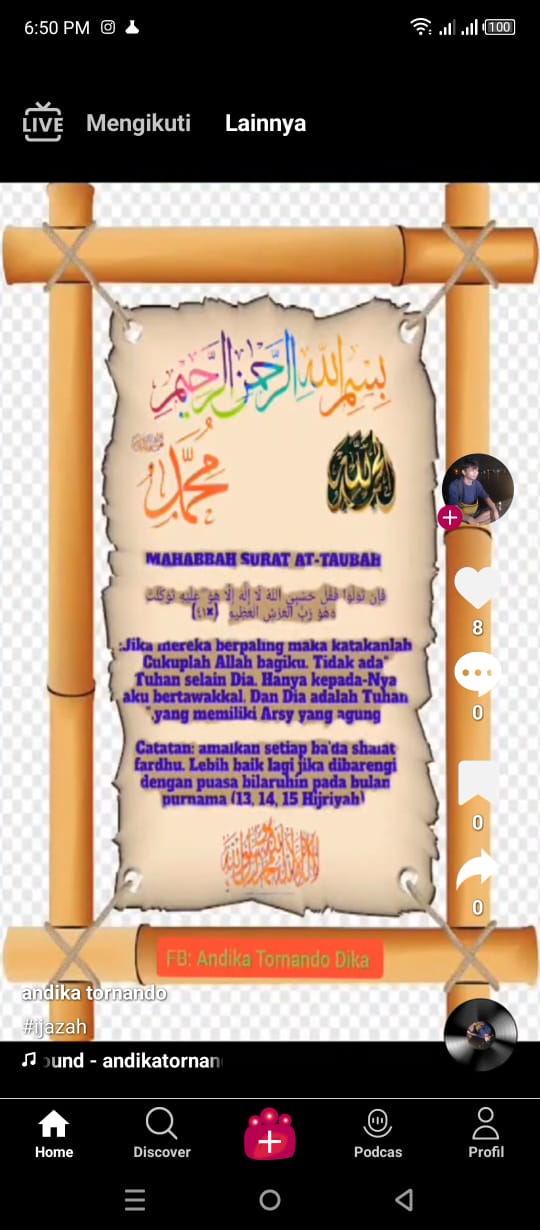 6:50 PM
100
LIVE Mengikuti Lainnya
بِسْمِ اللهِ الرَّحْمٰنِ الرَّحِيْمِ
محمد
MAHABBAH SURAT AT-TAUBAH
فَإِن تَوَلَّوْا فَقُلْ حَسْبِيَ اللهُ لَا إِلَهَ إِلَّا هُوَ عَلَيْهِ تَوَكَّلْتُ
وَهُوَ رَبُّ الْعَرْشِ الْعَظِيمِ
:Jika mereka berpaling maka katakanlah
Cukuplah Allah bagiku. Tidak ada"
Tuhan selain Dia. Hanya kepada-Nya
aku bertawakkal. Dan Dia adalah Tuhan
".yang memiliki Arsy yang agung
Catatan: amalkan setiap ba'da shalat
fardhu. Lebih baik lagi jika dibarengi
dengan puasa bilaruhin pada bulan
purnama (13, 14, 15 Hijriyah)
8
0
0
0
FB: Andika Tornando Dika
andika tornando
#ijazah
ound - andikatornan
Home Discover Podcas Profil